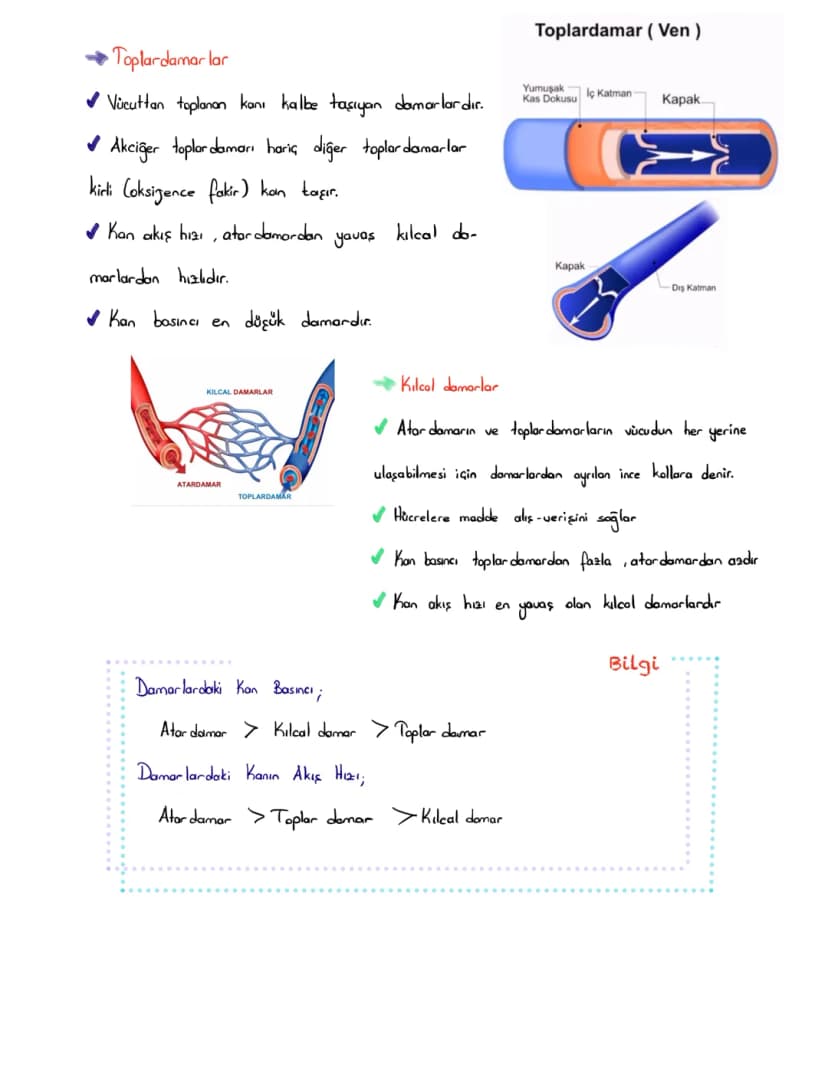 Toplardamar ( Ven )
Toplardamarlar
Vücuttan toplanan kanı kalbe taşıyan damarlardır.
Akciğer toplardamarı hariç diğer toplardamarlar
kirli (oksizence fakir) kan taşır.
Kan akış hızı, atardamardan yavaş kılcal da-
marlardan hızlıdır.
Kan basıncı en düşük damardır.
Yumuşak
Kas Dokusu
İç Katman
Kapak
Kapak
Dış Katman
KILCAL DAMARLAR
ATARDAMAR
TOPLARDAMAR
Kılcal damarlar
Atardamarın ve toplardamarların vücudun her yerine
ulaşabilmesi için damarlardan ayrılan ince kollara denir.
Hücrelere madde alış-verişini sağlar
Kan basıncı toplardamardan fazla, atardamardan azdır
Kan akış hızı en yavaş olan kılcal damarlardır
Bilgi
Damarlardaki Kan Basıncı;
Atar damar > Kılcal damar > Toplar damar
Damarlardaki Kanın Akış Hızı;
Atar damar > Toplar damar > Kılcal damar